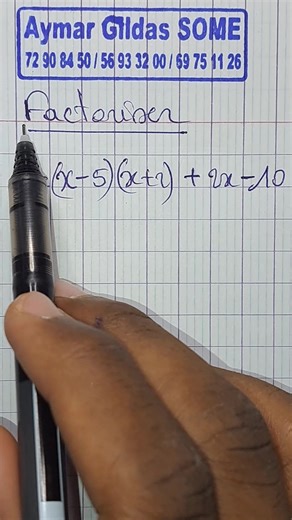 Aymar Gildas SOME
72 90 84 50 / 56 93 32 00 / 69 75 11 26
Factoriser
(x-5)(x+2) + 2x-10